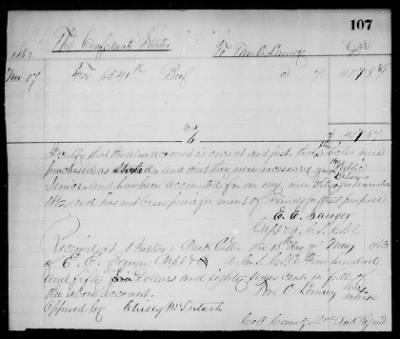 107
1862 The Confederate States To Wm C Lowrey Dr
Nov 27 For 6541 lbs Beef @ 7 457 87
$ 457 87
I certify that the above account is correct and just, that the articles were
purchased as stated and that they were necessary for the Public
Service and have been accounted for on my monthly for November
1862 and has not been paid for want of funds for that purpose
E. E.
Capt & A. C. S. C.S.A
Received at C.N. the 15th day of May 1863
of E. E. Capt & A.C.S. C.S.A four hundred
and fifty seven Dollars and eighty seven cents in full of
the above account.
Wm C Lowrey his mark
Approved by Chilly McIntosh
Col Comdg Regmt